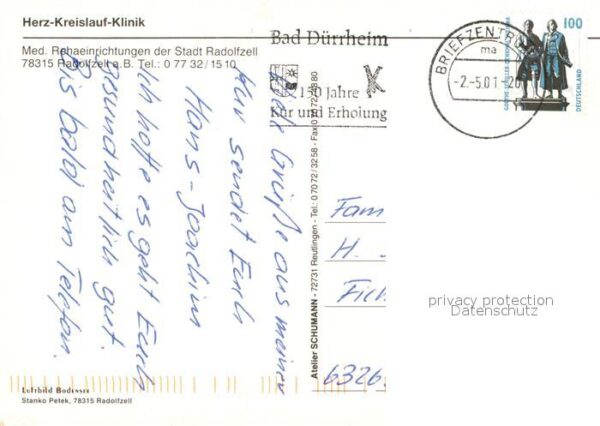 Herz-Kreislauf-Klinik
Med. Rehaeinrichtungen der Stadt Radolfzell
78315 Radolfzell a.B. Tel.: 0 77 32 / 15 10
Bad Dürrheim
150 Jahre
Kur und Erholung
BRIEFZENTRUM
ma
-2.-5.01-20
100
DEUTSCHLAND
Liebe Grüße aus meiner
Kur sendet Euch
Hans-Joachim
Ich hoffe es geht Euch
gesundheitlich gut.
Bis bald am Telefon.
Atelier SCHUMANN - 72731 Reutlingen - Tel.: 0 70 72 / 32 58 - Fax 0 70 72 /
Fam
H.
Fich
6326
privacy protection
Datenschutz
Luftbild Bodensee
Stanko Petek, 78315 Radolfzell